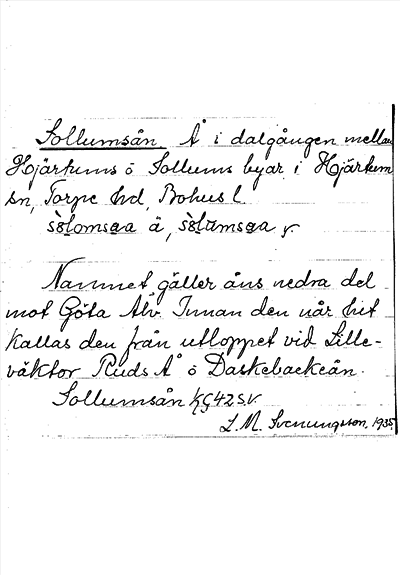 Sollumsån. Å i dalgången mellan
Hjärtums o Sollums byar i Hjärtum
sn, Torpe hd, Bohus l.
sòlomsaa ä, sòlamsaa y.
Namnet gäller åns nedra del
mot Göta Älv. Innan den når hit
kallas den från utloppet vid Lille-
väktor Ruds Å o Daskebackeån.
Sollumsån KG 42 S.V.
L. M. Svenungsson. 1935